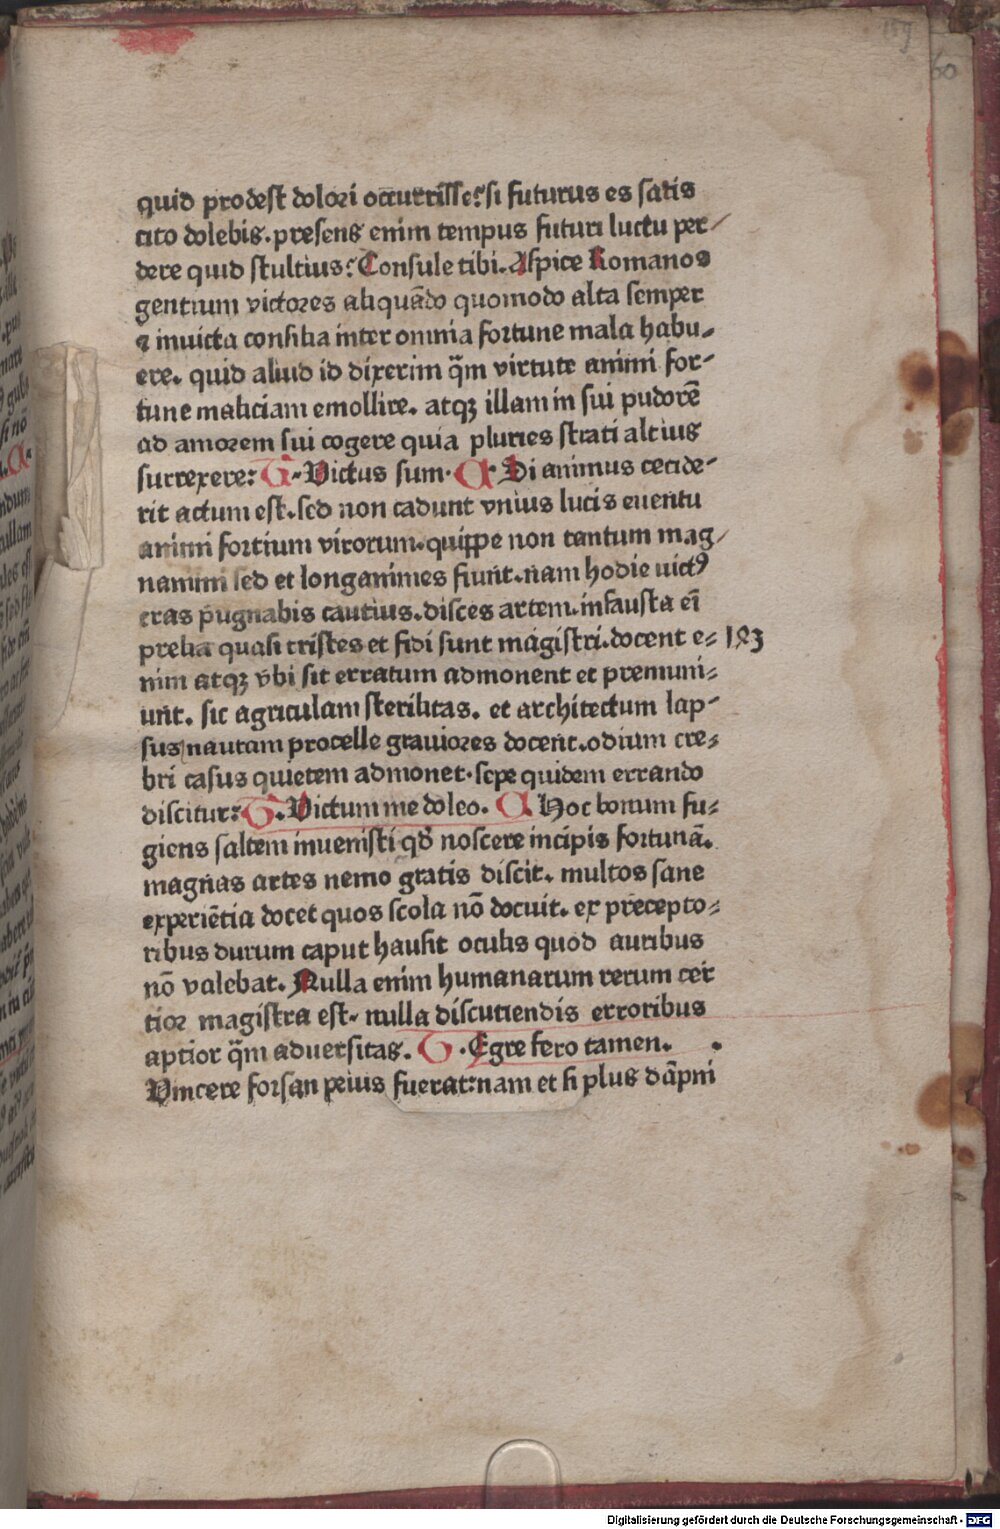 159
60
quid prodest dolori occurrisse? si futurus es satis
cito dolebis. presens enim tempus futuri luctu per-
dere quid stultius? Consule tibi. Aspice Romanos
gentium victores aliquādo quomodo alta semper
⁊ inuicta consilia inter omnia fortune mala habu-
ere. quid aliud id dixerim q̄m virtute animi for-
tune maliciam emollire. atqꝫ illam in sui pudorē
ad amorem sui cogere quia pluries strati altius
surrexere: T. Victus sum. A. Si animus cecide-
rit actum est. sed non cadunt vnius lucis euentu
animi fortium virorum. quippe non tantum mag-
nanimi sed et longanimes fiunt. nam hodie uictꝰ
cras pugnabis cautius. disces artem. infausta ei̅
prelia quasi tristes et fidi sunt magistri. docent e- 193
nim atqꝫ vbi sit erratum admonent et premuni-
unt. sic agriculam sterilitas. et architectum lap-
sus nautam procelle grauiores docent. odium cre-
bri casus quietem admonet. sepe quidem errando
discitur: T. Victum me doleo. A. Hoc bonum fu-
giens saltem inuenisti qd̄ noscere incipis fortunā.
magnas artes nemo gratis discit. multos sane
experiētia docet quos scola nō docuit. ex precepto-
ribus durum caput hausit oculis quod auribus
nō valebat. Nulla enim humanarum rerum cer
tior magistra est. nulla discutiendis erroribus
aptior q̄m aduersitas. T. Egre fero tamen.
Vincere forsan peius fuerat: nam et si plus dāpni
Digitalisierung gefördert durch die Deutsche Forschungsgemeinschaft - DFG